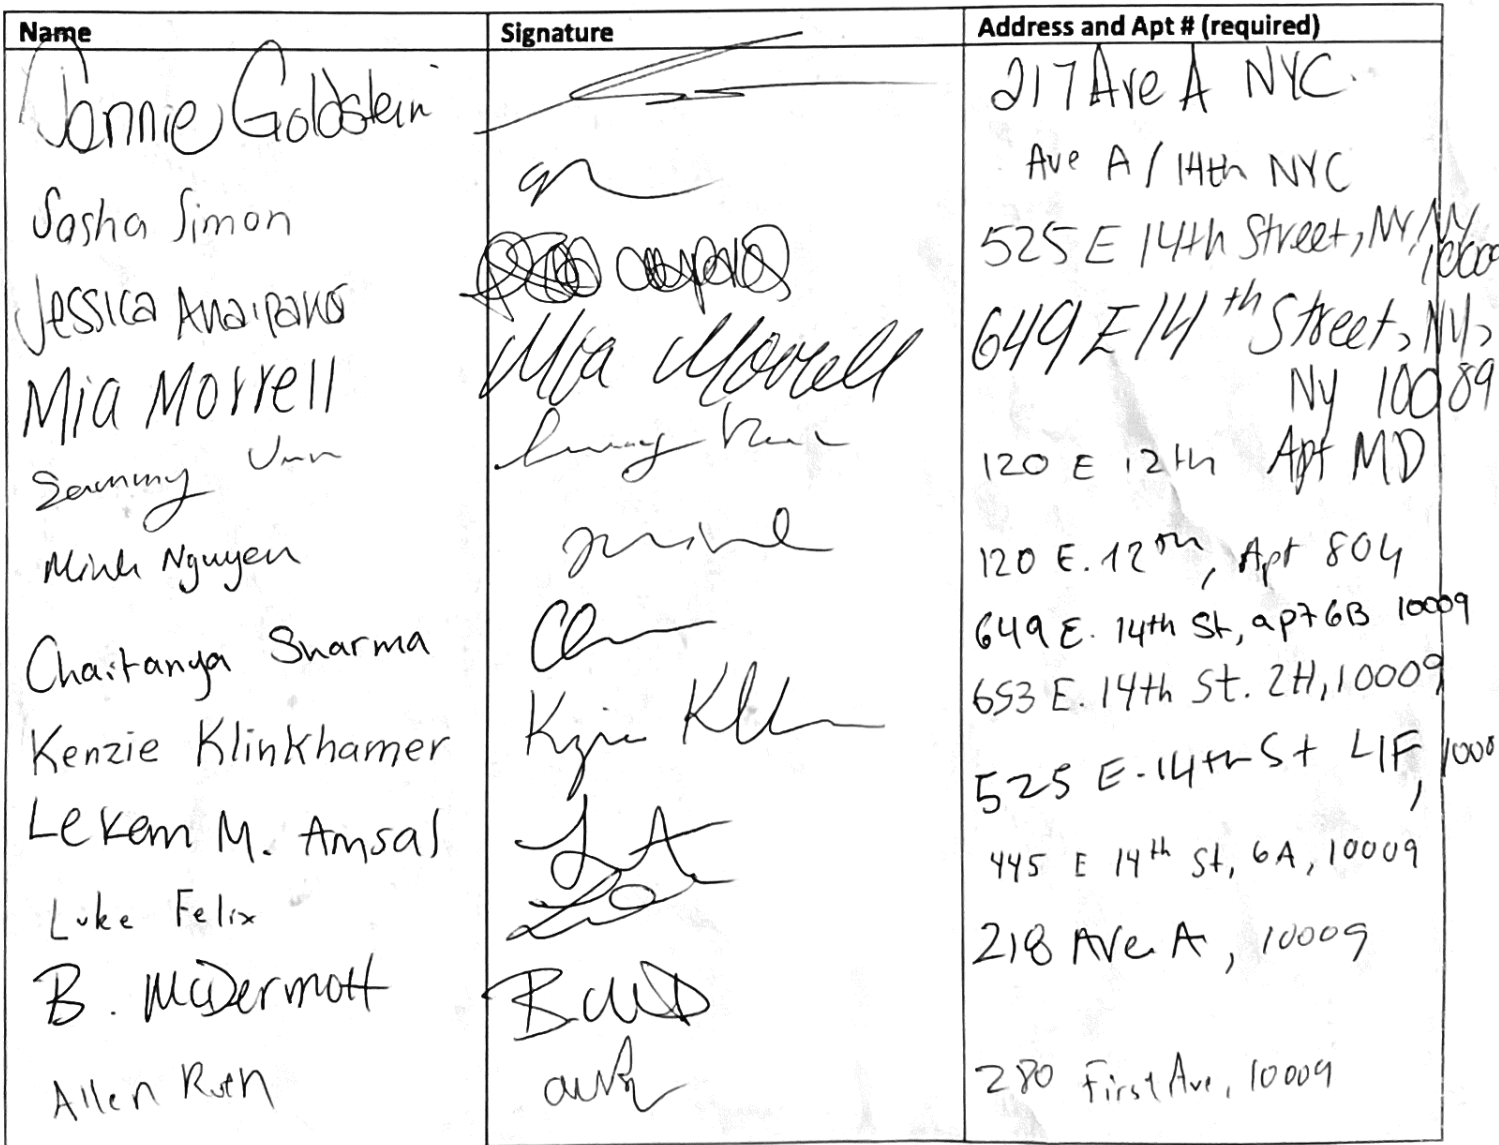 Name Signature Address and Apt # (required)
Jonnie Goldstein 217 Ave A NYC.
Sasha Simon Ave A / 14th NYC
Jessica 525 E 14th Street, NY, NY
10009
Mia Morrell Mia Morrell 649 E 14th Street, NY,
Ny 10089
Sammy 120 E 12th Apt MD
Minh Nguyen 120 E. 12th, Apt 804
Chaitanya Sharma 649 E. 14th St, apt 6B 10009
Kenzie Klinkhamer 653 E. 14th St. 2H, 10009
Lekem M. Amsal 525 E. 14th St 1000
Luke Felix 445 E 14th St, 6A, 10009
B. McDermott 218 Ave A, 10009
Allen Ruth 280 First Ave, 10009